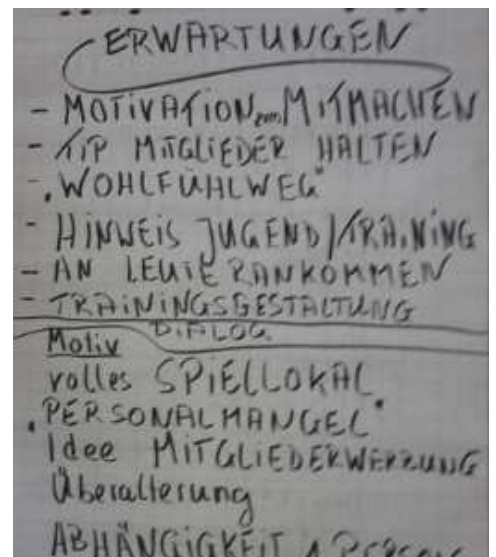 ERWARTUNGEN
- MOTIVATION zum MITMACHEN
- TIP MITGLIEDER HALTEN
- "WOHLFÜHLWEG"
- HINWEIS JUGEND/TRAINING
- AN LEUTE RANKOMMEN
- TRAININGSGESTALTUNG
DIALOG
Motiv
volles SPIELLOKAL
"PERSONALMANGEL"
Idee MITGLIEDERWERBUNG
Überalterung
ABHÄNGIGKEIT 1 PERSON